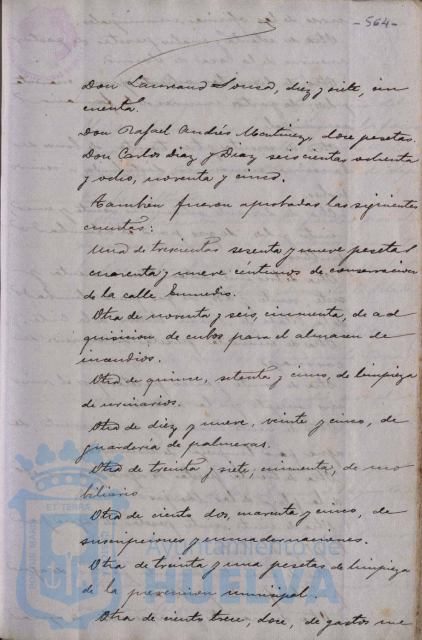 -564-
Don Laureano Sousa, diez y siete, cin
cuenta.
Don Rafael Andrés Martinez, doce pesetas.
Don Carlos Diaz y Diaz seiscientas ochenta
y ocho, noventa y cinco.
Tambien fueron aprobadas las siguientes
cuentas:
Una de trescientas sesenta y nueve pesetas
cuarenta y nueve centimos de conservacion
de la calle Enmedio.
Otra de noventa y seis, cincuenta, de ad
quisicion de cubos para el almacen de
incendios.
Otra de quince, setenta y cinco, de limpieza
de urinarios.
Otra de diez y nueve, veinte y cinco, de
guarderia de palmeras.
Otra de treinta y siete, cincuenta, de mo
biliario
Otra de ciento dos, cuarenta y cinco, de
suscripciones y encuadernaciones.
Otra de treinta y una pesetas de limpieza
de la prevencion municipal.
Otra de ciento trece, doce, de gastos me
Ayuntamiento de
HUELVA